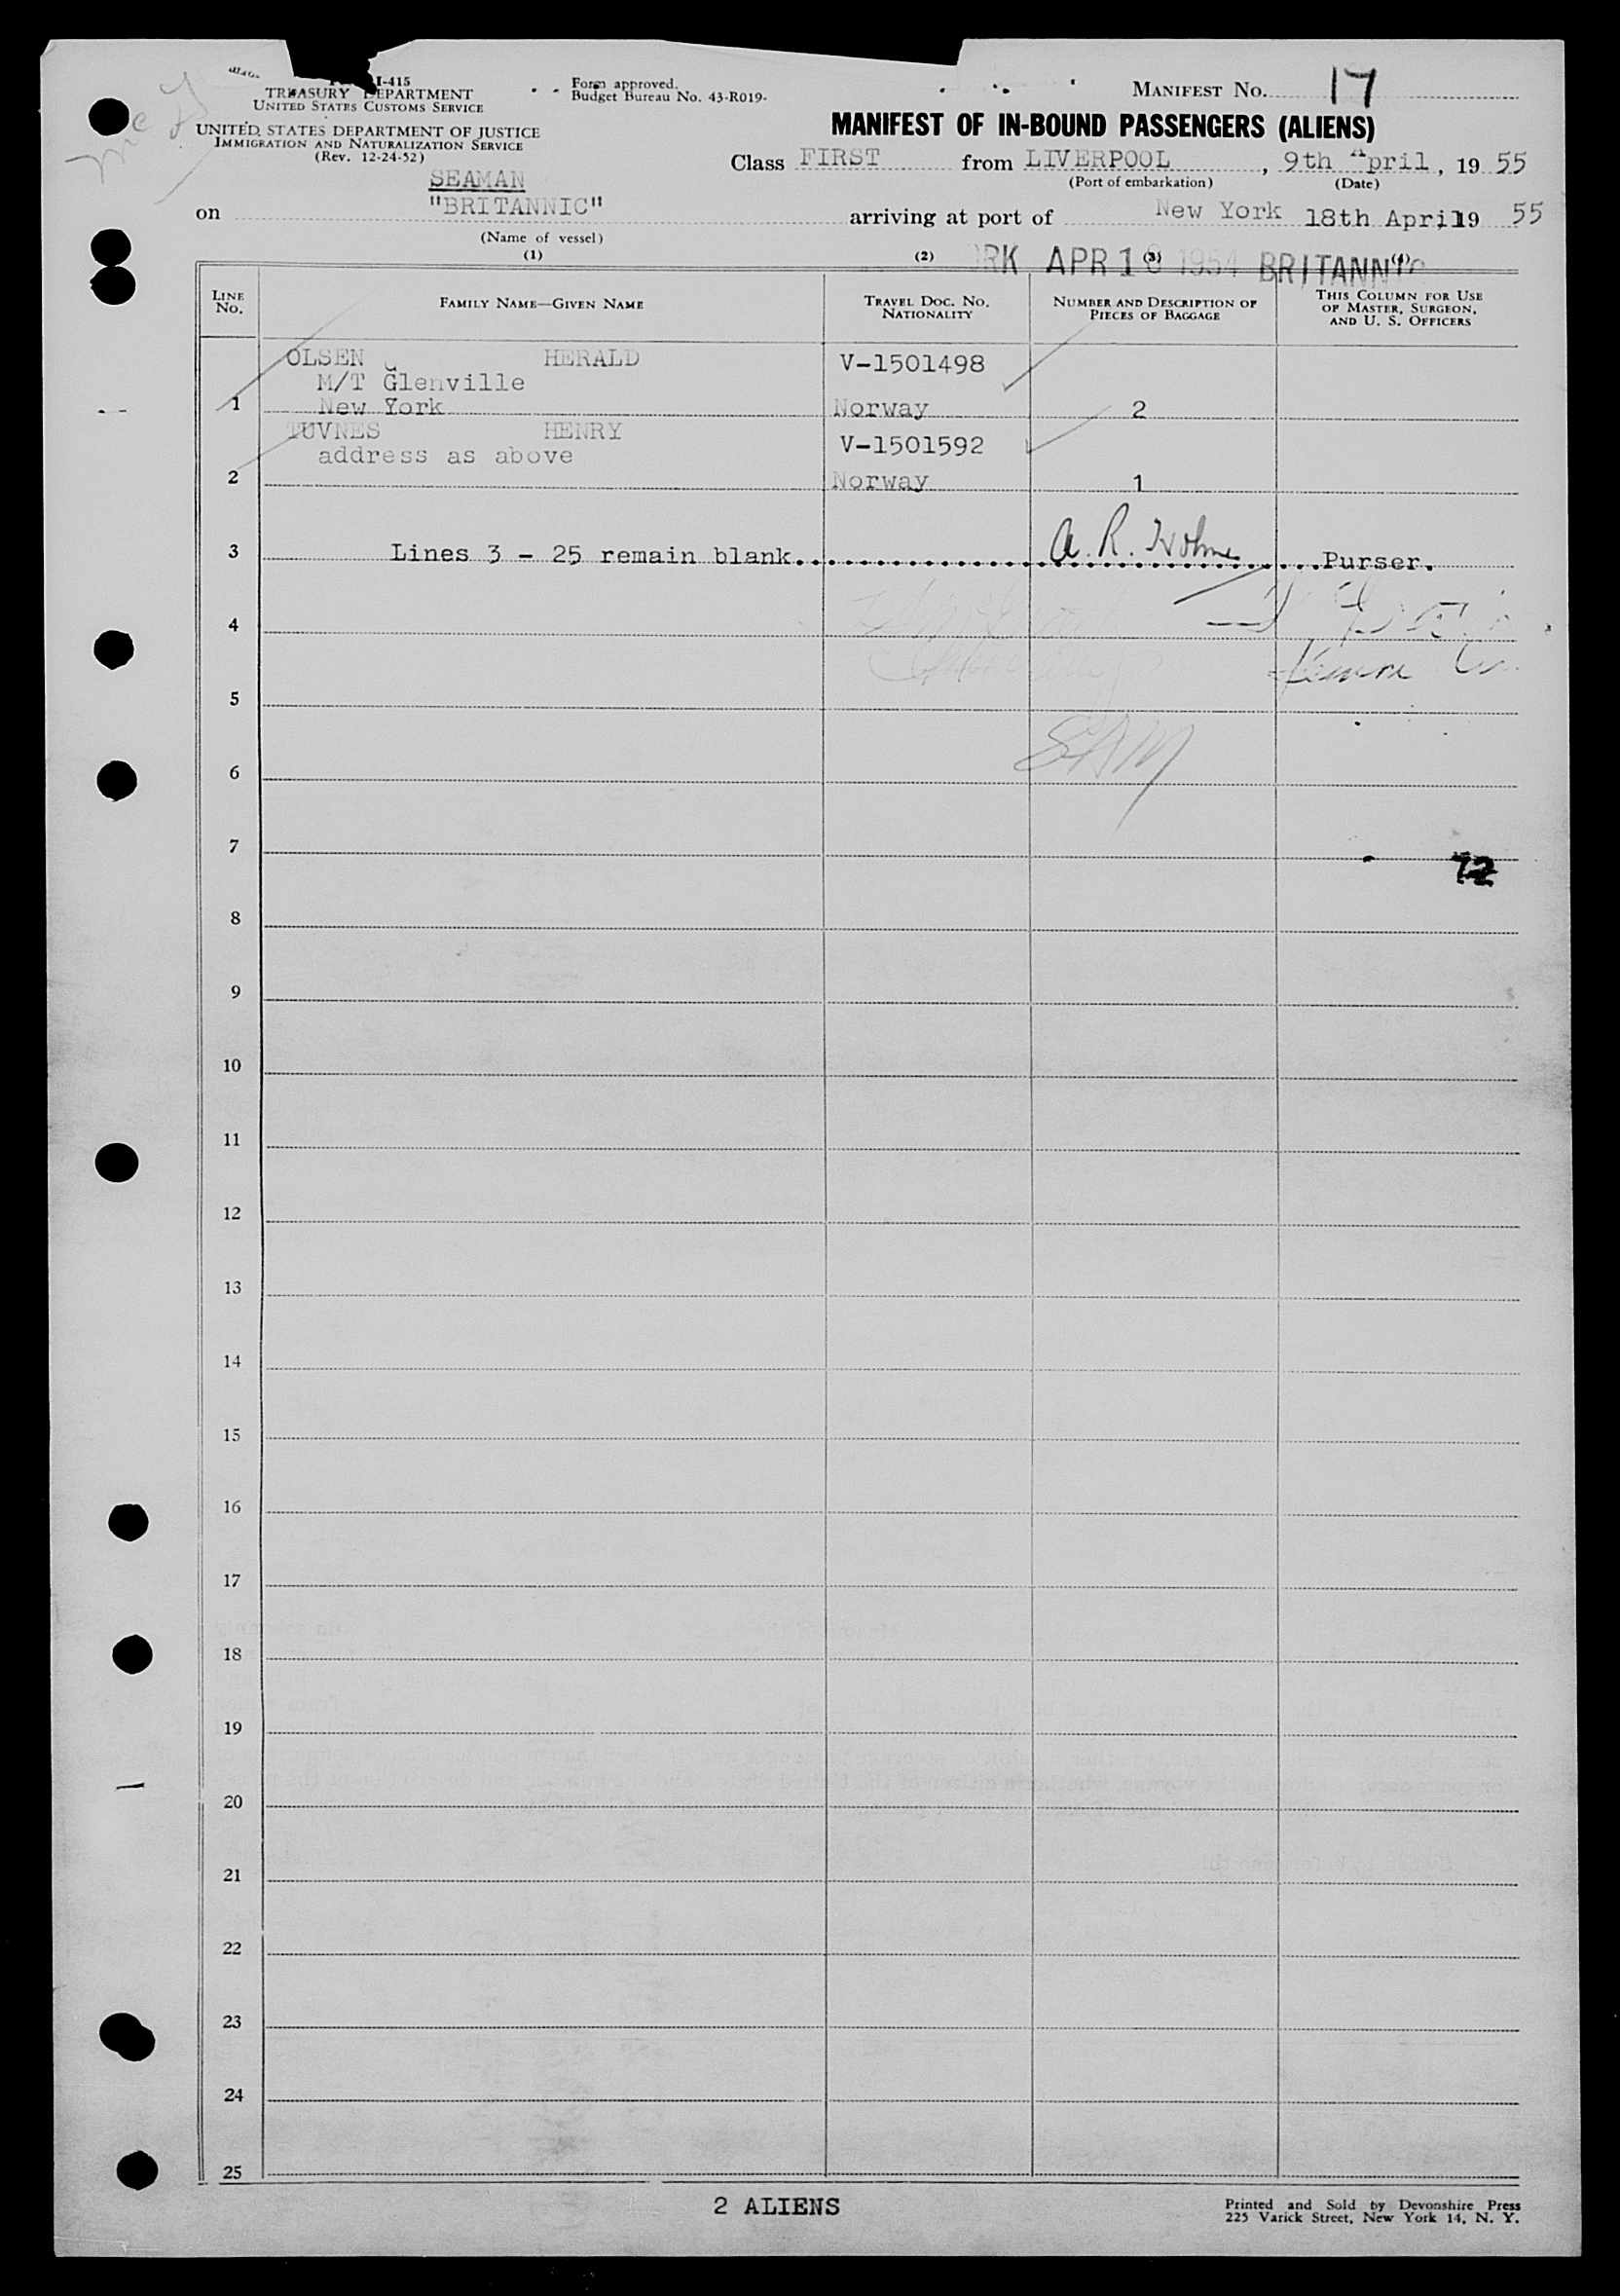 I-415
TREASURY DEPARTMENT
UNITED STATES CUSTOMS SERVICE
UNITED STATES DEPARTMENT OF JUSTICE
IMMIGRATION AND NATURALIZATION SERVICE
(Rev. 12-24-52)
Form approved.
Budget Bureau No. 43-R019-
MANIFEST NO. 17
MANIFEST OF IN-BOUND PASSENGERS (ALIENS)
Class FIRST from LIVERPOOL, 9th April, 19 55
(Port of embarkation) (Date)
SEAMAN
on "BRITANNIC" arriving at port of New York 18th April, 19 55
(Name of vessel)
(1) (2) (3) (4)
RK APR 18 1954 BRITANNIC
LINE No. FAMILY NAME—GIVEN NAME TRAVEL DOC. NO. NATIONALITY NUMBER AND DESCRIPTION OF PIECES OF BAGGAGE THIS COLUMN FOR USE OF MASTER, SURGEON, AND U. S. OFFICERS
OLSEN HERALD V-1501498
M/T Glenville
1 New York Norway 2
TUVNES HENRY V-1501592
address as above
2 Norway 1
3 Lines 3 - 25 remain blank. A. R. Purser.
4
5
SAM
6
7
72
8
9
10
11
12
13
14
15
16
17
18
19
20
21
22
23
24
25
2 ALIENS
Printed and Sold by Devonshire Press
225 Varick Street, New York 14, N. Y.